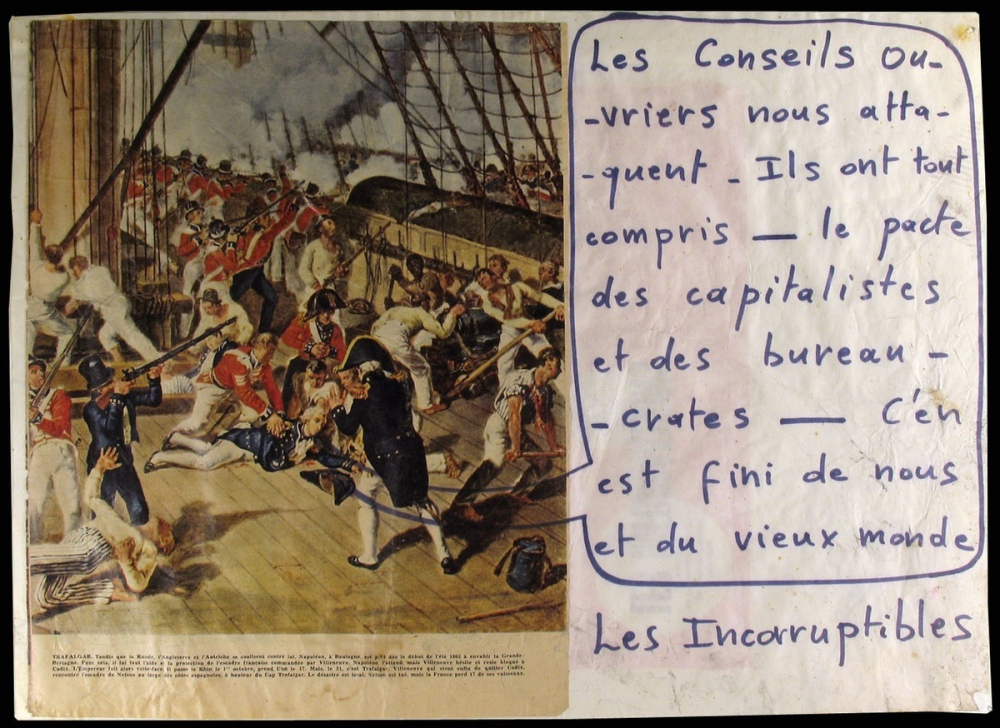 Les Conseils ou-
-vriers nous atta-
-quent - Ils ont tout
compris — le pacte
des capitalistes
et des bureau -
-crates — C'en
est fini de nous
et du vieux monde
Les Incorruptibles
TRAFALGAR. Tandis que la Russie, l'Angleterre et l'Autriche se coalisent contre lui, Napoléon, à Boulogne, est prêt dès le début de l'été 1805 à envahir la Grande-
Bretagne. Pour cela, il lui faut l'aide et la protection de l'escadre française commandée par Villeneuve. Napoléon l'attend, mais Villeneuve hésite et reste bloqué à
Cadix. L'Empereur fait alors volte-face. Il passe le Rhin le 1er octobre, prend Ulm le 17. Mais, le 21, c'est Trafalgar. Villeneuve qui vient enfin de quitter Cadix,
rencontre l'escadre de Nelson au large des côtes espagnoles, à hauteur du Cap Trafalgar. Le désastre est total. Nelson est tué, mais la France perd 17 de ses vaisseaux.